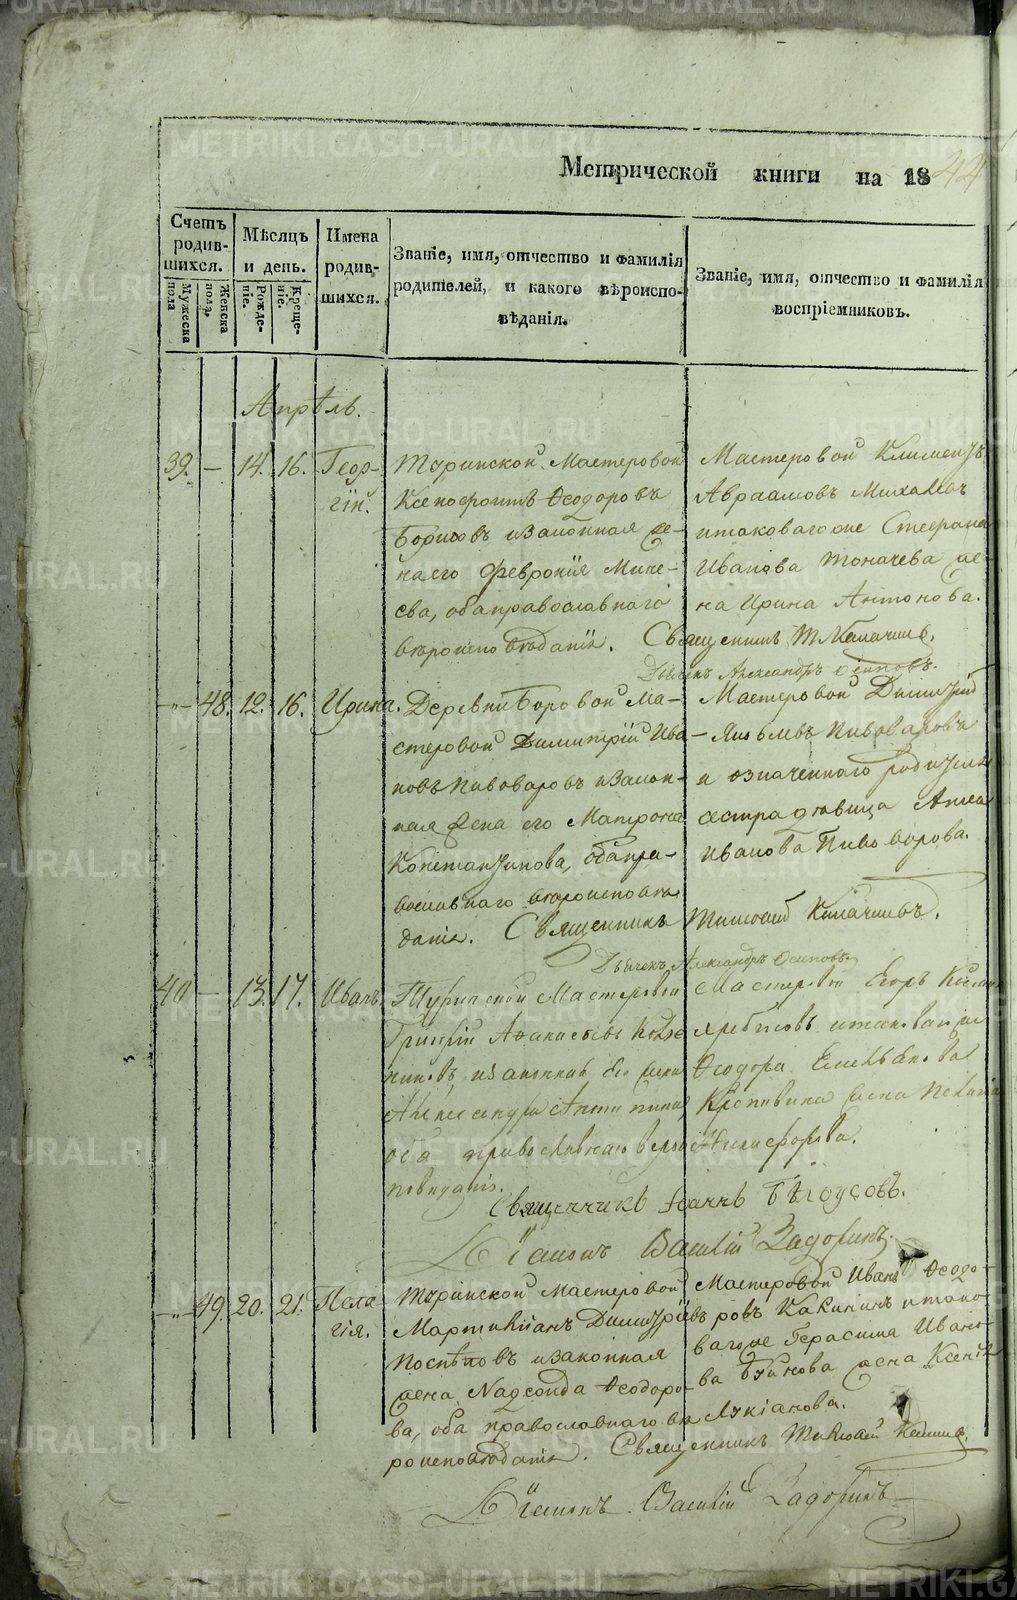 METRIKI.GASO-URAL.RU
Метрической книги на 1844
Счетъ родившихся.
Мужеска пола
Женска пола.
Мѣсяцъ и день.
Рожденіе.
Крещеніе.
Имена родившихся.
Званіе, имя, отчество и фамилія
родителей, и какого вѣроиспо-
вѣданія.
Званіе, имя, отчество и фамилія
воспріемниковъ.
Апрѣль.
39. — 14. 16. Геор-
гій.
Туринской Мастеровой
Ксенофонтъ Ѳеодоровъ
Борисовъ изаконная же-
на его Феврония Мине-
ева, оба православнаго
вѣроисповѣданія.
Мастеровой Климентъ
Авраамовъ
итаковагоже Стефана
Иванова Толмачева же-
на Ирина Антонова.
Священникъ Т. Калачевъ.
Дьячекъ Александръ Осиповъ.
—„— 48. 12. 16. Ирина.
Деревни Боровой Ма-
стеровой Димитрій Ива
новъ Пивоваровъ изакон-
ная жена его Матрона
Константинова, оба пра-
вославнаго вѣроисповѣ-
данія.
Мастеровой Димитрій
Пивоваровъ
и означеннаго родителя
сестра девица Анна
Иванова Пивоварова.
Священникъ Тимофей Калачевъ.
Дьячекъ Александръ Осиповъ.
40 — 13. 17. Иванъ
Туринской Мастеровой
Григорій Афанасьевъ
изаконная его жена
Александра Антипина,
оба православнаго вѣроис
повѣданія.
Мастеровой Егоръ
итаковагоже
Ѳеодора Емельянова
жена
Никифорова.
Священникъ Іоаннъ Бѣлоусовъ.
Діаконъ Василій Задоринъ.
—„— 49. 20. 21. Пела
гія.
Туринской Мастеровой
Мартиніанъ Димитріевъ
Поспѣловъ изаконная
жена Надежда Ѳеодоро-
ва, оба православнаго вѣ
роисповѣданія.
Мастеровой Иванъ Ѳеодо-
ровъ Какининъ итако-
вагоже Герасима Ивано-
ва жена Ксенія
Лукіанова.
Священникъ Тимофей
Діаконъ Василій Задоринъ